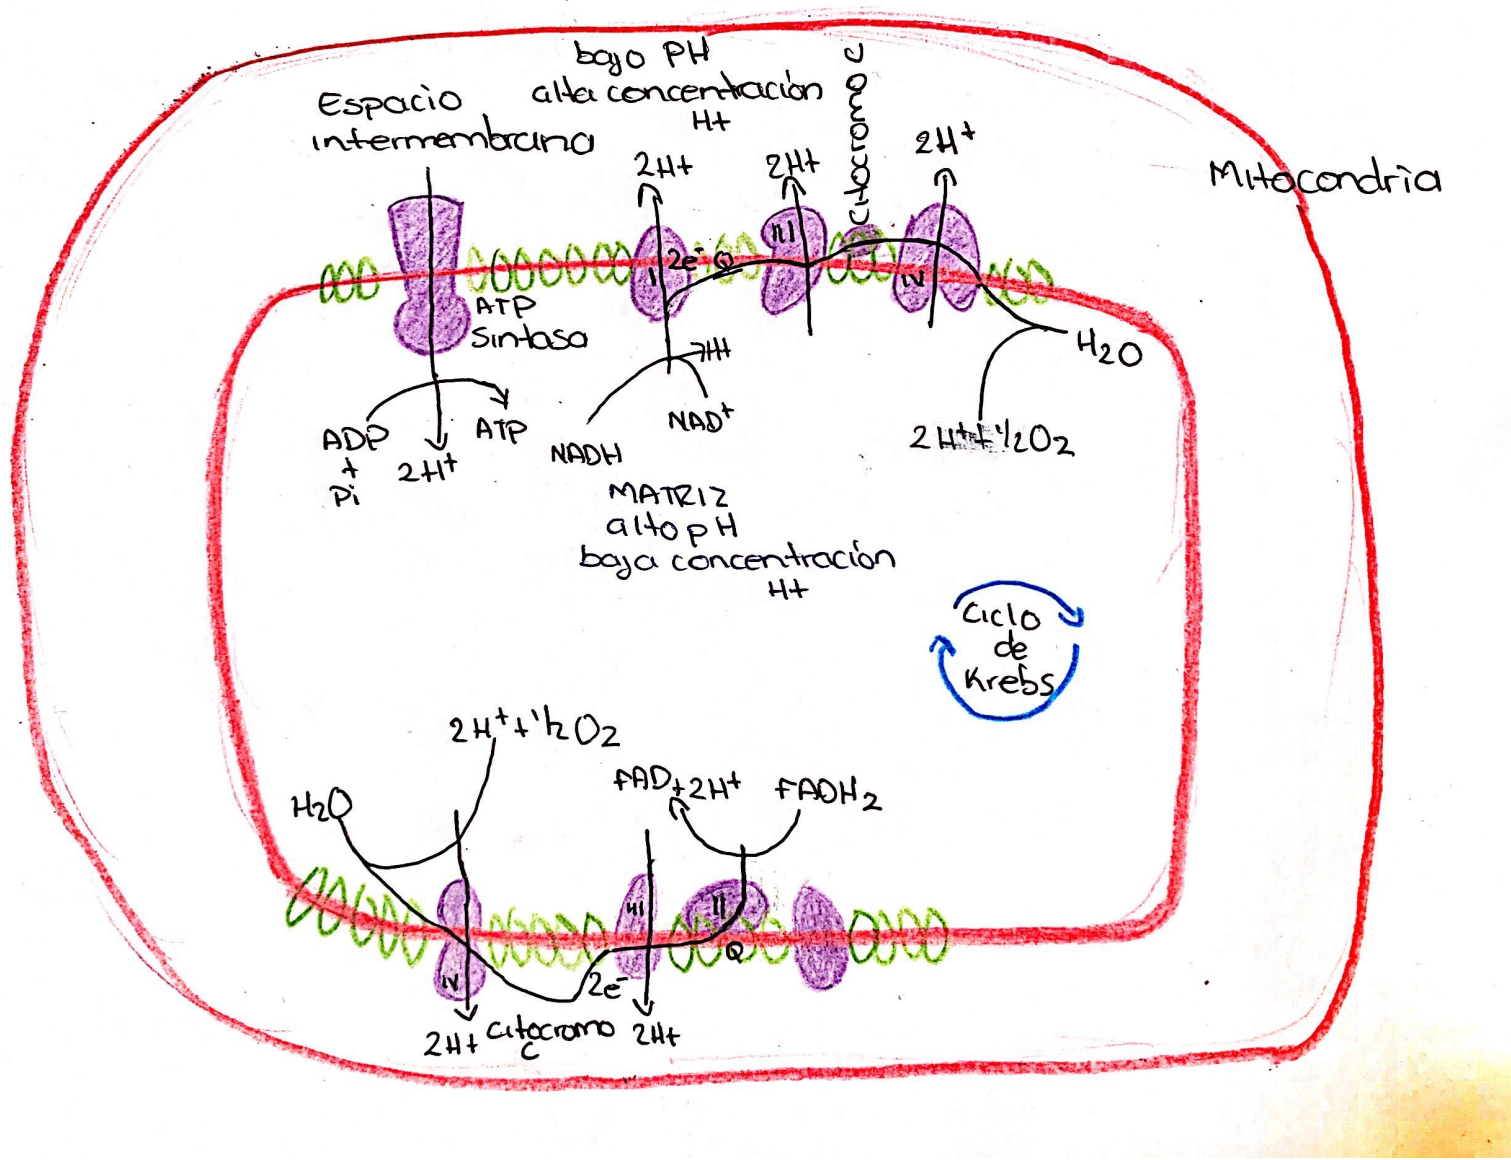 bajo PH
alta concentración
H+
Espacio
intermembrana
citocromo c
2H+
2H+
2H+
Mitocondria
I
2e-
Q
III
IV
ATP
Sintasa
H+
H2O
ADP
+
Pi
2H+
ATP
NADH
NAD+
2H++1/2O2
MATRIZ
alto pH
baja concentración
H+
Ciclo
de
Krebs
2H++1/2O2
H2O
FAD+2H+
FADH2
III
II
Q
IV
2e-
2H+
citocromo
c
2H+